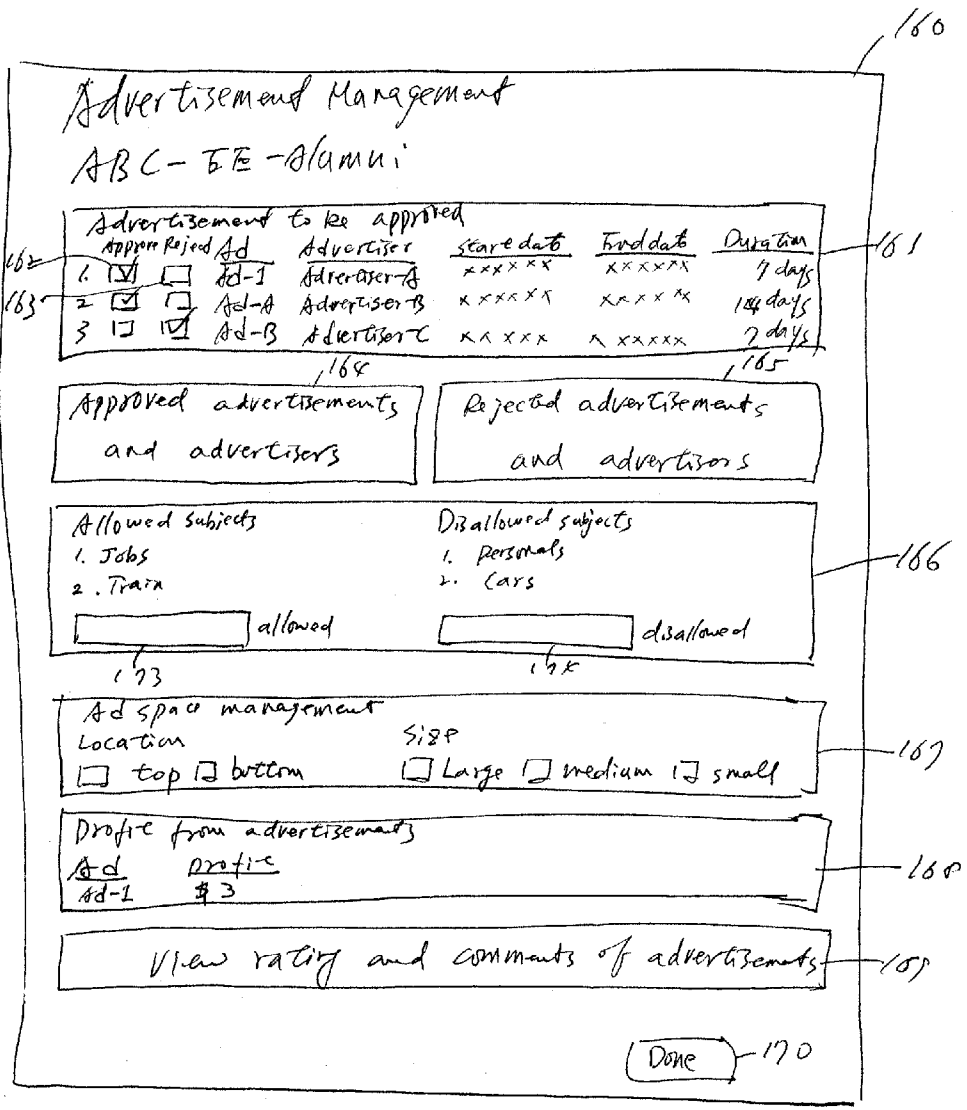 160
Advertisement Management
ABC-EE-Alumni
Advertisement to be approved
Approve Reject Ad Advertiser start date End date Duration
161
162
1. Ad-1 Advertiser-A xxxxxx xxxxxx 7 days
163
2 Ad-A Advertiser-B xxxxxx xxxxxx 14 days
3 Ad-B Advertiser-C xxxxx xxxxxx 7 days
164 165
Approved advertisements Rejected advertisements
and advertisers and advertisors
Allowed subjects Disallowed subjects
1. Jobs 1. Personals
166
2. Train 2. Cars
allowed disallowed
173 174
Ad space management
Location Size
167
top bottom Large medium small
Profit from advertisements
Ad Profit
168
Ad-1 $3
View rating and comments of advertisements
169
Done 170